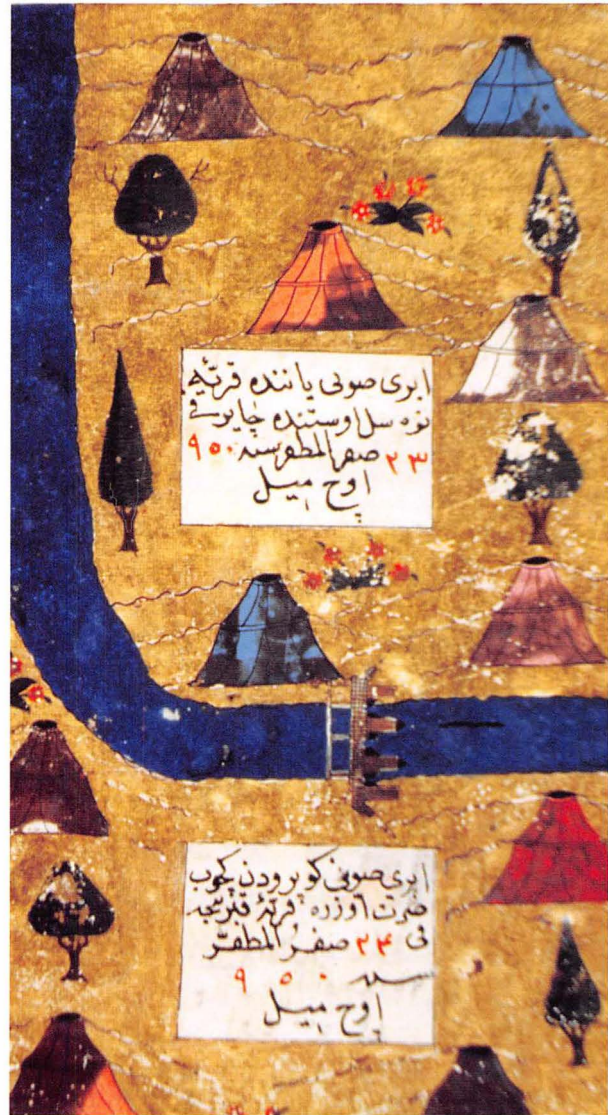 ابری صوئی یاننده قریهٔ
نوه سل اوستنده چایر فی
۲۳ صفر المظفر سنه ۹۵۰
اوچ میل
ابری صوئی کوپرودن کچوب
اوزره قریهٔ
فی ۲۴ صفر المظفر
سنه ۹۵۰
اوچ میل